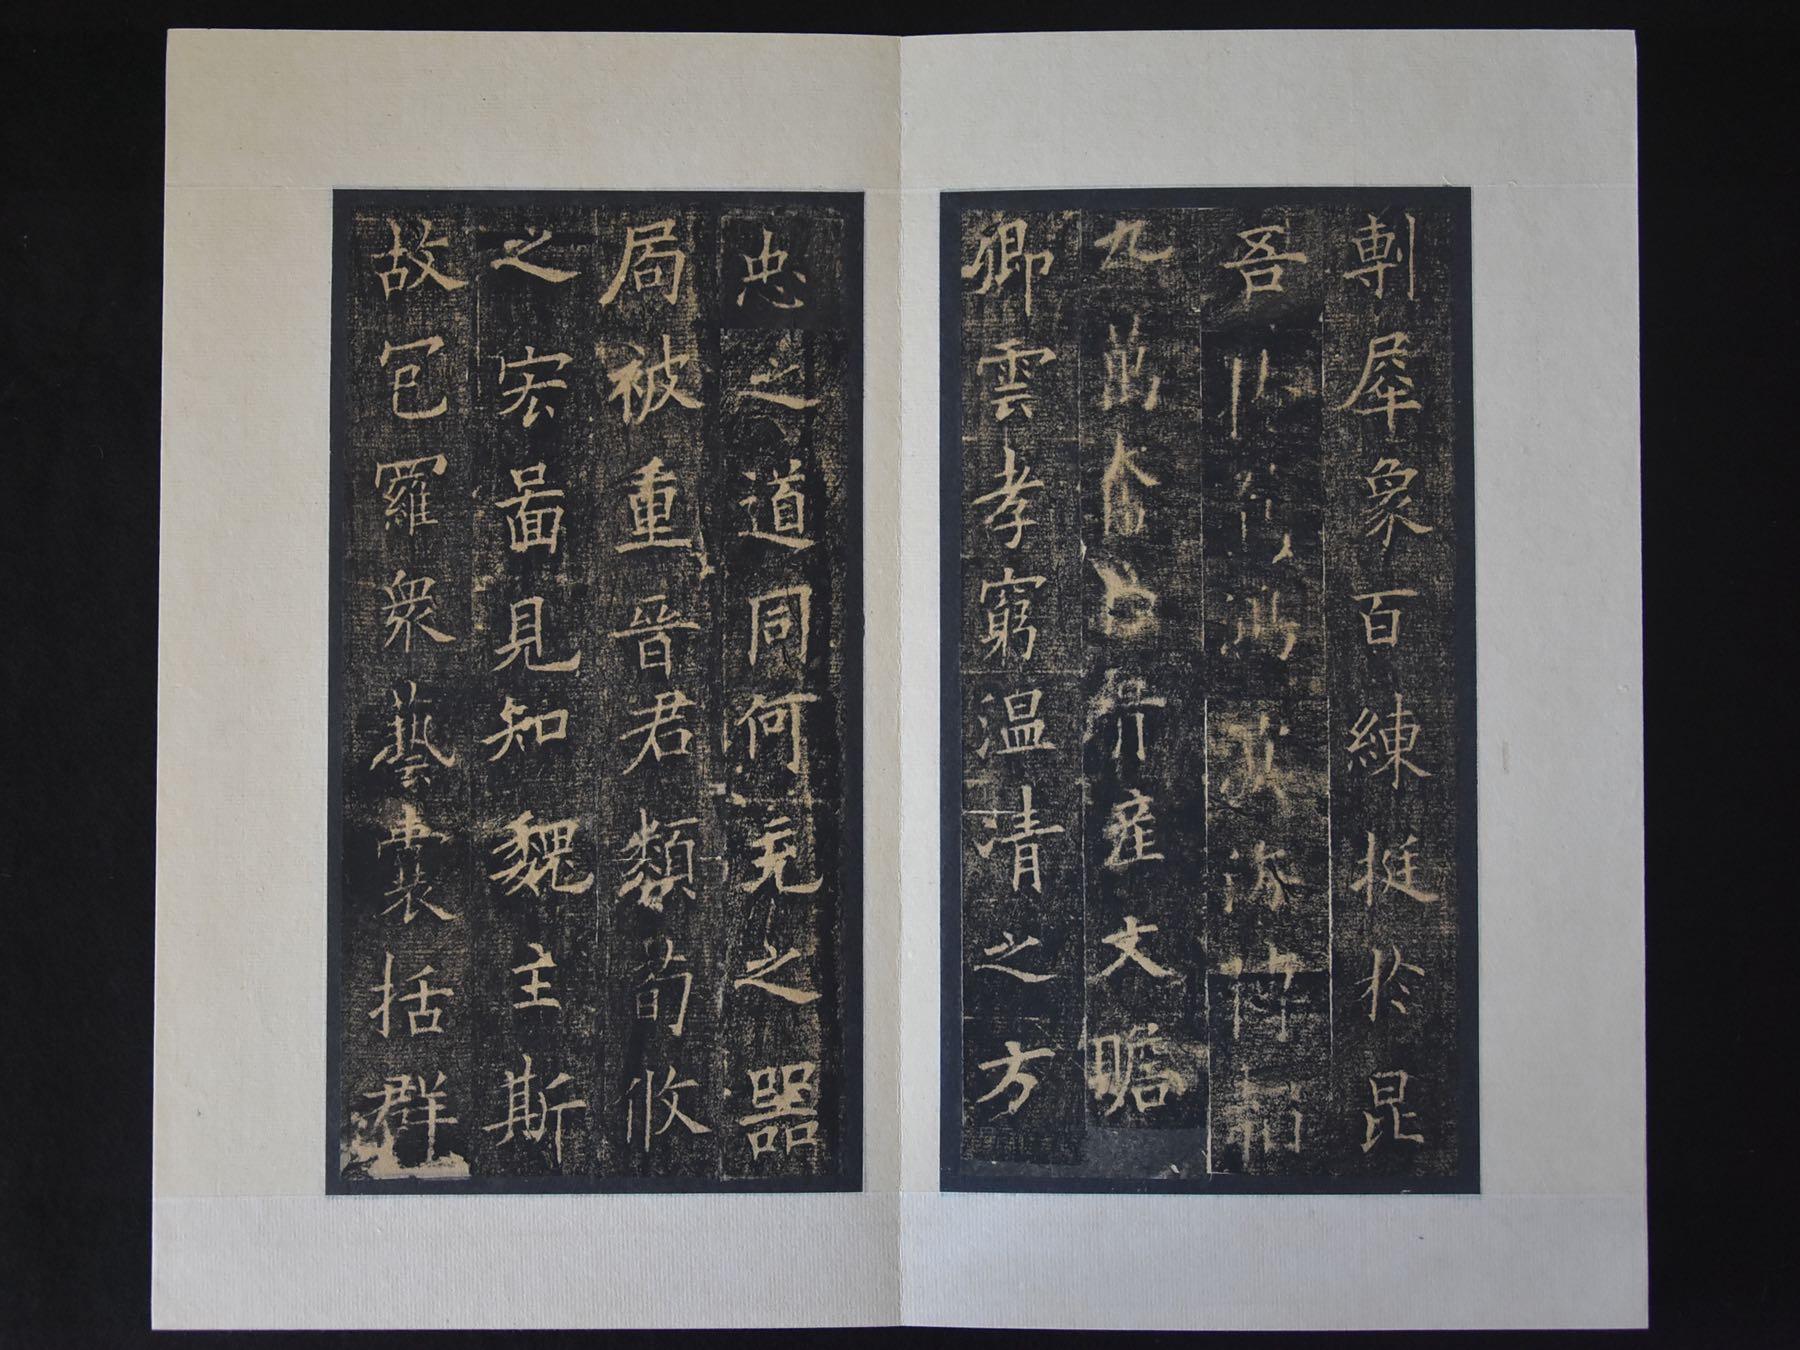 剸犀象百練挺於昆
吾
九萬産文贍
卿雲孝窮温清之方
忠之道同何充之器
局被重晉君類荀攸
之宏啚見知魏主斯
故包羅衆藝囊括群